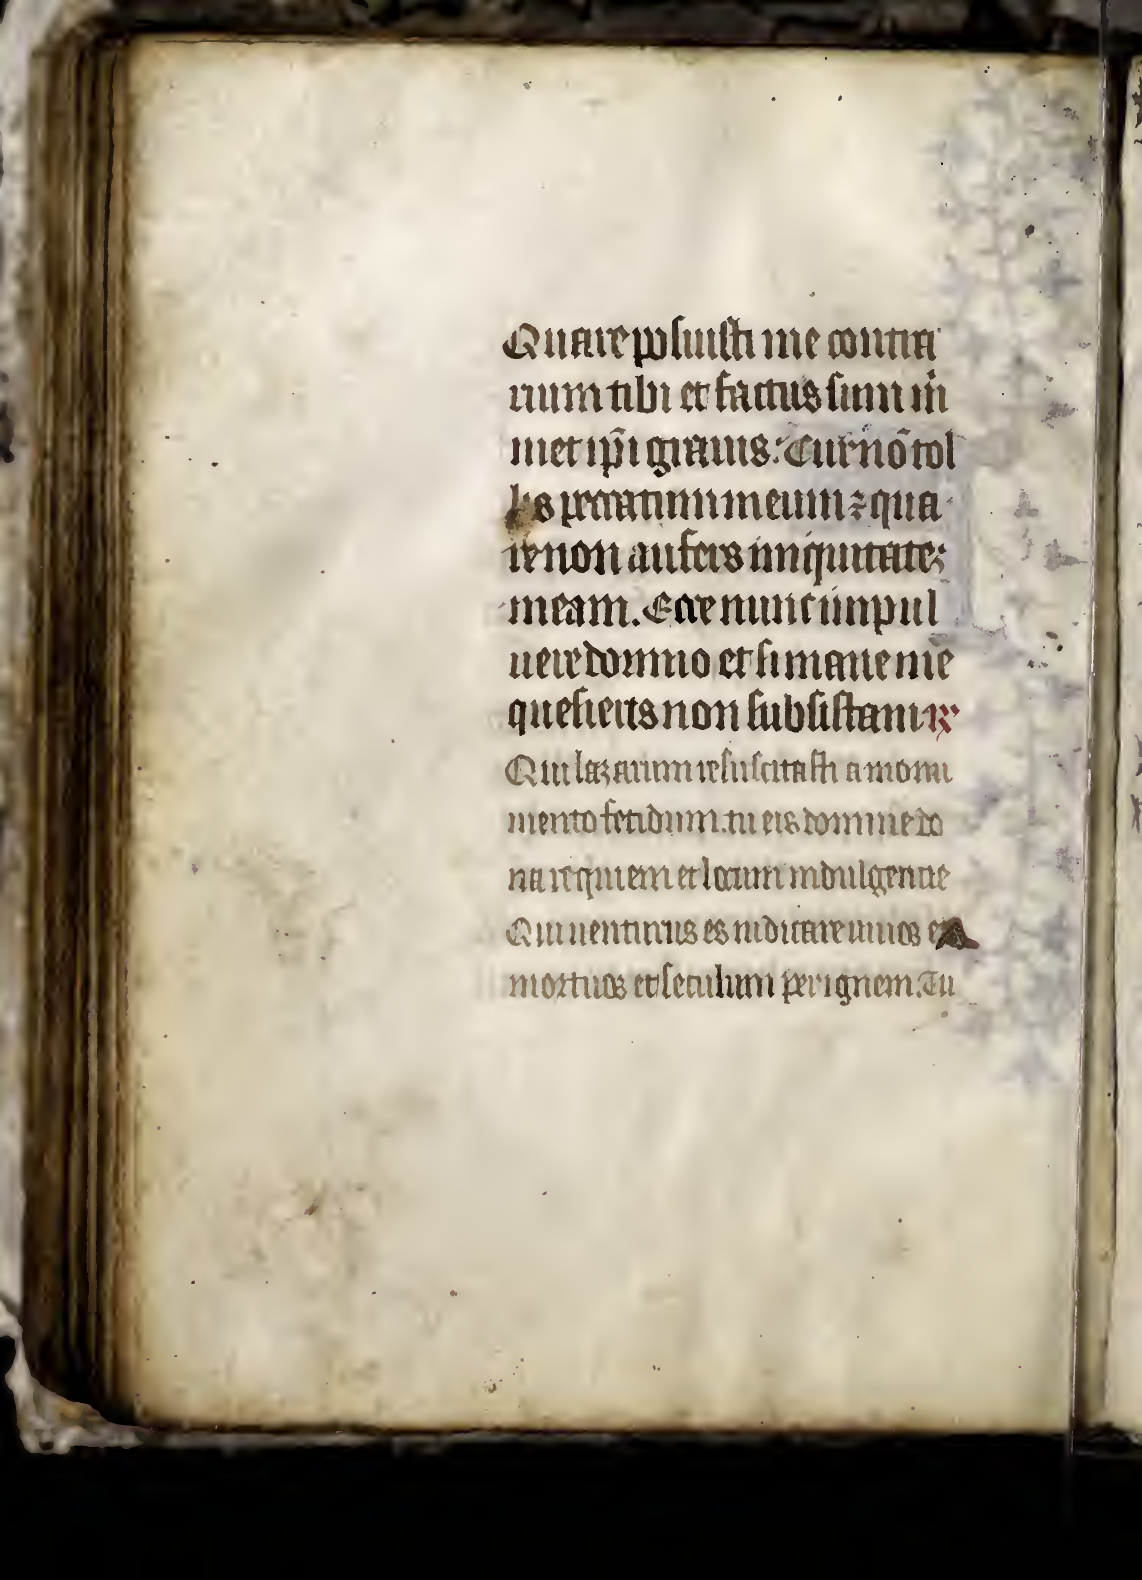 Quare posuisti me contra
rium tibi et factus sum m̄
met ip̄i grauis: Cur nō tol
lis peccatum meum ⁊ qua
re non aufers iniquitatē
meam. Ecce nunc in pul
uere domino et si mane me
quesieris non subsistam ℟
Qui lazarum resuscitasti a monu
mento fetidum. tu eis domine do
na requiem et locum indulgentie
Qui uenturus es iudicare uiuos et
mortuos et seculum per ignem. Tu